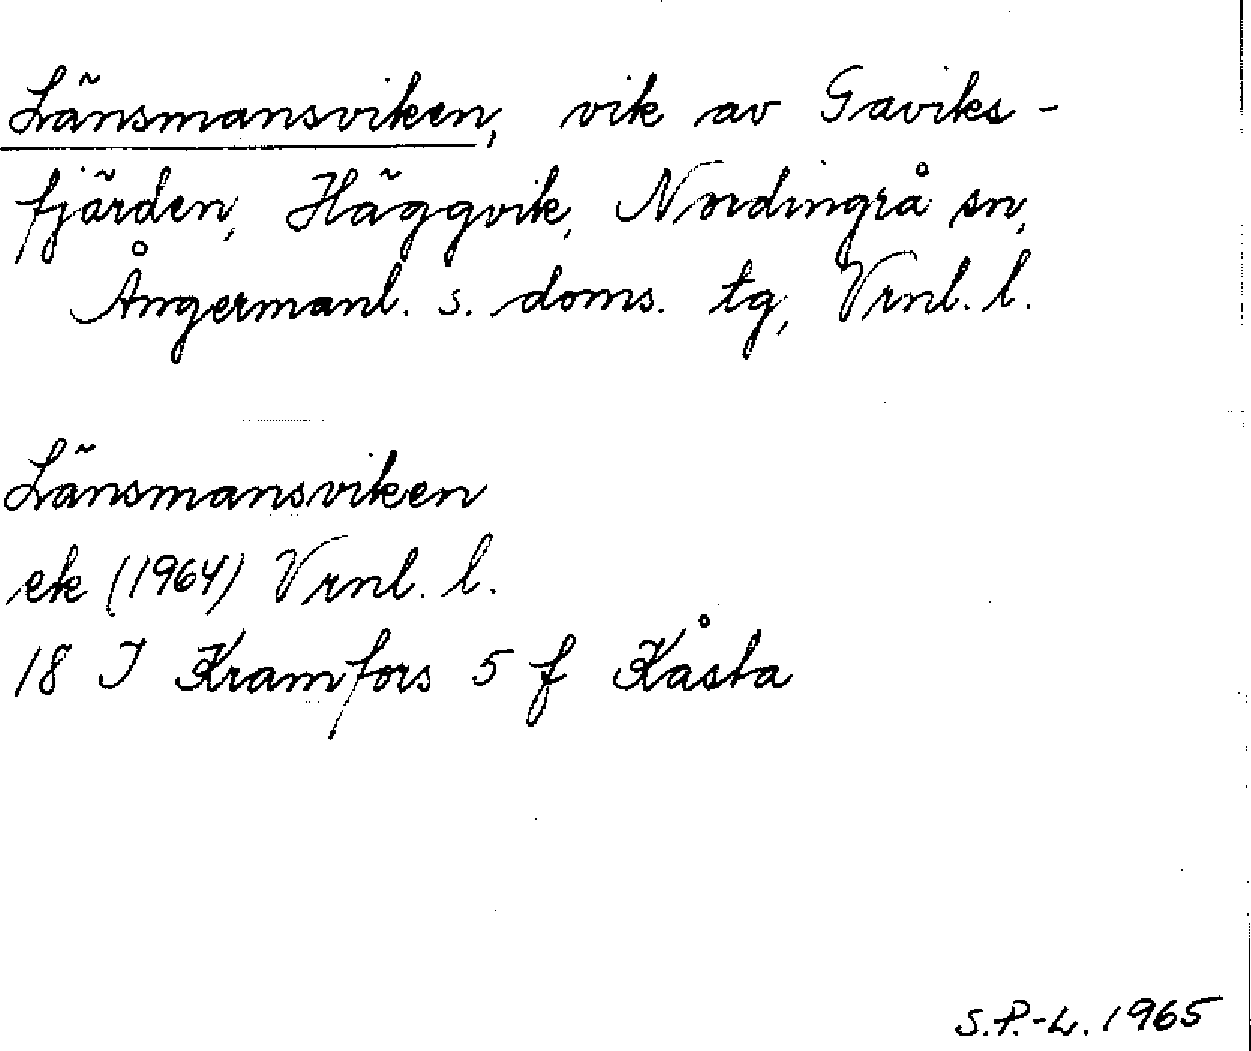 Länsmansviken, vik av Gaviks-
fjärden, Häggvik, Nordingrå sn,
Ångermanl. s. doms. tg, Vrnl. l.
Länsmansviken
ek (1964) Vrnl. l.
18 I Kramfors 5 f Kåsta
S.P.-L. 1965